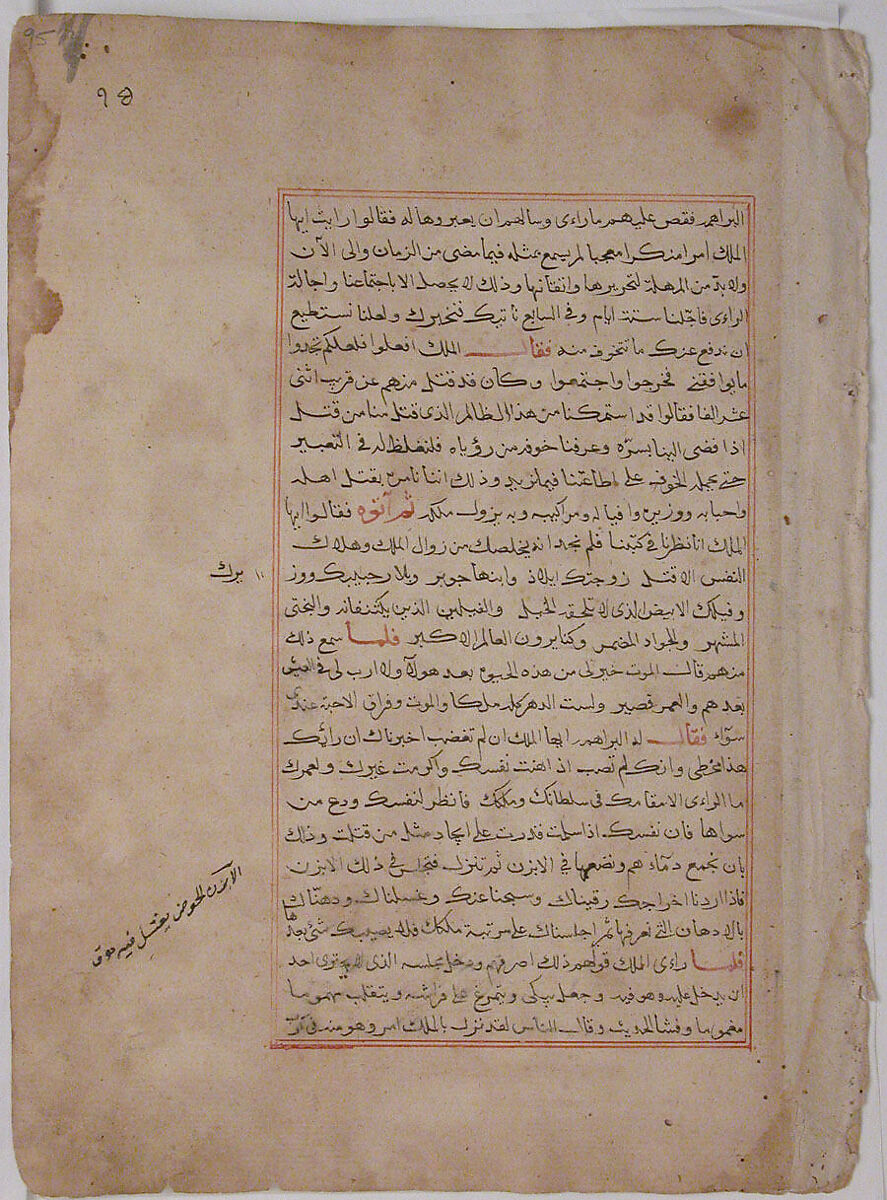 95
٩٥
البراهمه فقص عليهم ما راءى وسالهم ان يعبروها له فقالوا رايت ايها
الملك امرا منكرا معجبا لم يسمع بمثله فيما مضى من الزمان والى الآن
ولا بد من المهلة لتحريرها واتقانها وذلك لا يحصل الا باجتماعنا واجالة
الراءى فاجلنا ستة ايام وفى السابع ناتيك فنخبرك ولعلنا نستطيع
ان ندفع عنك ما تتخوف منه فقال الملك افعلوا فلعلكم تجدوا
ما يوافقنى فخرجوا واجتمعوا وكان قد قتل منهم عن قريب اثنى
عشر الفا فقالوا قد استمكنا من هذا الظالم الذى قتل منا من قتل
اذا فضى الينا بسره وعرفنا خوفه من رؤياه فلنغلظ له فى التعبير
حتى يحمله الخوف على اطاعتنا فيما نريد وذلك اننا نامره بقتل اهله
واحبابه ووزيره وافياله ومراكيبه وبه يزول ملكه ثم آتوه فقالوا ايها
الملك انا نظرنا فى كتبنا فلم نجد انه يخلصك من زوال الملك وهلاك
النفس الا قتل زوجتك ايلاذ وابنها جوبر وبلار حبيبك ووز
يرك
وفيلك الابيض الذى لا تلحقه الخيل والفيلين الذين يكتنفانه والبختى
المشهر والجواد المضمر وكنايرون العالم الاكبر فلما سمع ذلك
منهم قال الموت خير لى من هذه الحيوة بعد هولآ ولا ارب لى فى العيش
بعدهم والعمر قصير ولست الدهر كله ملكا والموت وفراق الاحبة عندى
سوآء فقال له البراهمه ايها الملك ان لم تغضب اخبرناك ان رائك
هذا مخطى وانك لم تصب اذ اهنت نفسك واكرمت غيرك ولعمرك
ما الراءى الا مقامك فى سلطانك وملكك فانظر لنفسك ودع من
سواها فان نفسك اذا سلمت قدرت على ايجاد مثل من قتلت وذلك
بان نجمع دمآءهم ونضعها فى الابزن ثم تنزل فتجلس فى ذلك الابزن
فاذا اردنا اخراجك رقيناك ومسحنا عنك وغسلناك ودهناك
بالادهان التى نعرفها ثم اجلسناك على مرتبة ملكك فلا يصيبك شئ بعدها
فلما راءى الملك قولهم ذلك اصرفهم ودخل مجلسه الذى لا يجترى احد
ان يدخل عليه وهو فيه وجعل يبكى ويتمرغ على فراشه ويتقلب مهموما
مغموما وفشا الحديث وقال الناس لقد نزل بالملك امر وهو منه فى
الابزن الحوض يغتسل فيه